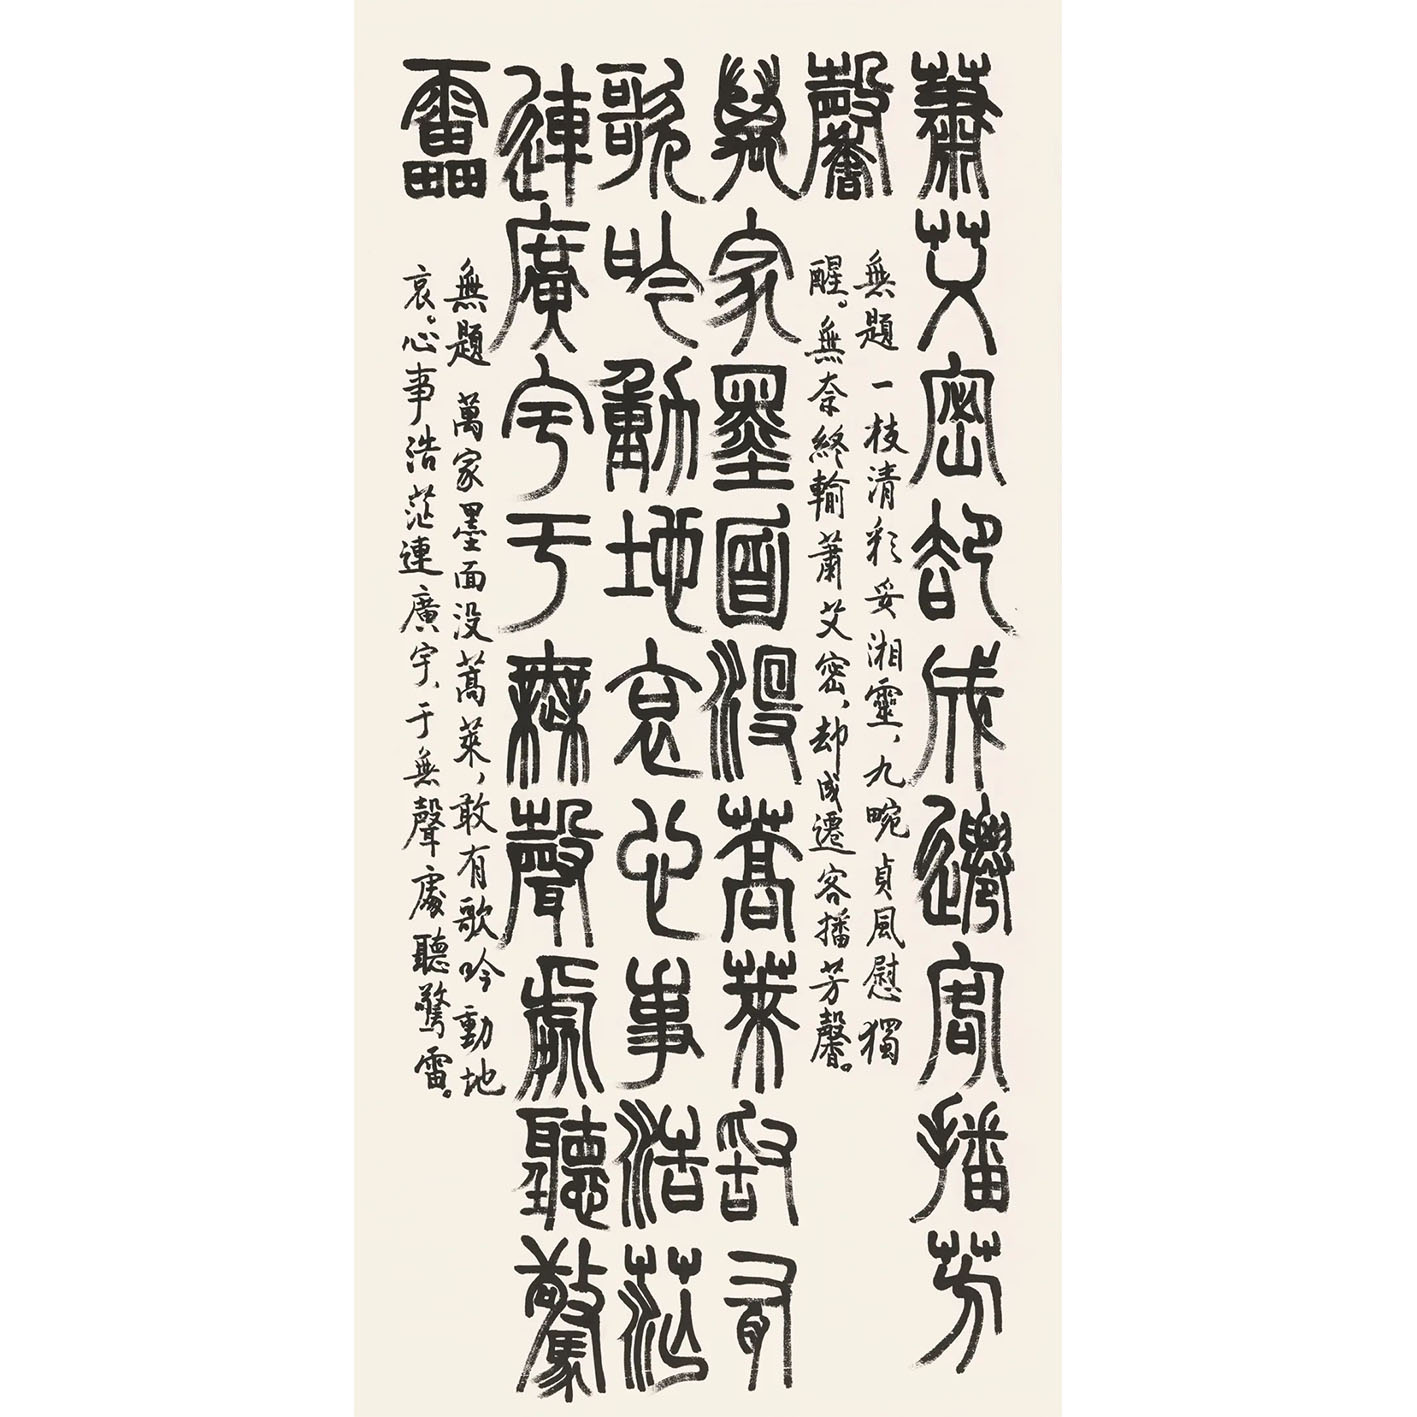 蕭艾密却成遷客播芳
馨
無題 一枝清彩妥湘靈、九畹貞風慰獨
醒。無奈終輸蕭艾密、却成遷客播芳馨。
萬家墨面沒蒿萊敢有
歌吟動地哀心事浩茫
連廣宇于無聲處聽驚
雷
無題 萬家墨面没蒿萊、敢有歌吟動地
哀。心事浩茫連廣宇、于無聲處聽驚雷。